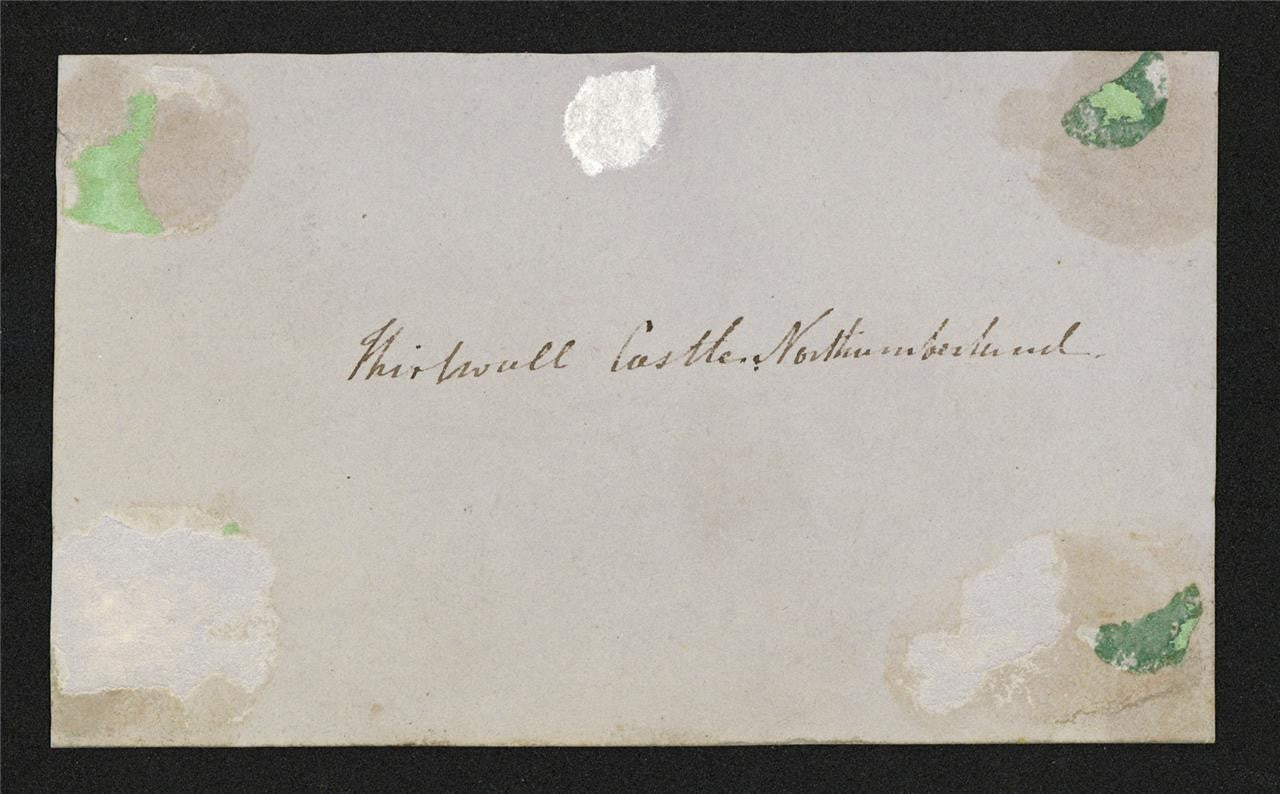 Thirlwall Castle. Northumberland.